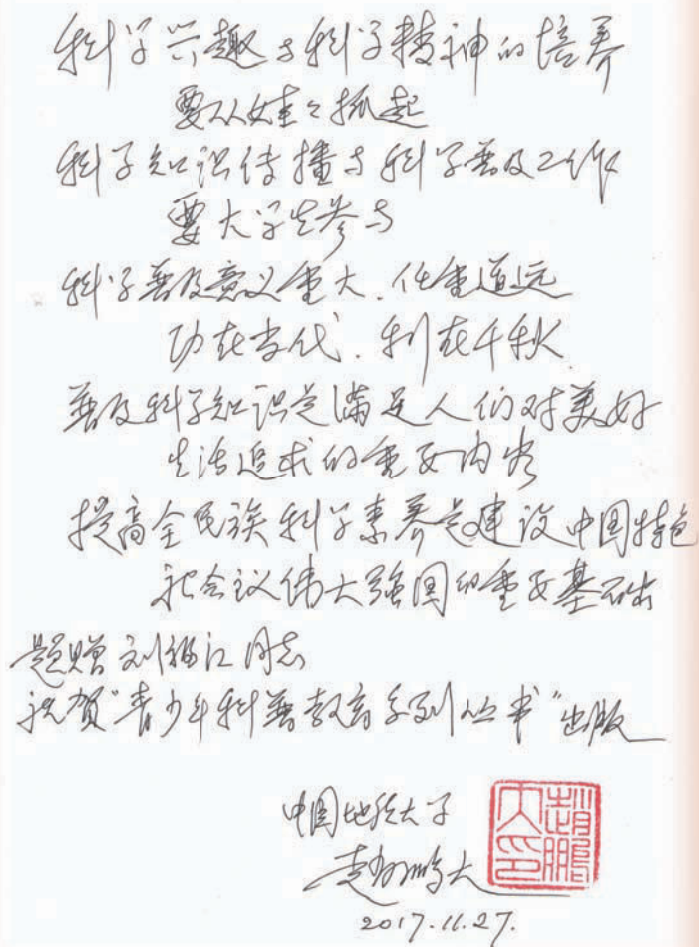 科学兴趣与科学精神的培养
要从娃娃抓起
科学知识传播与科学普及工作
要大学生参与
科学普及意义重大、任重道远
功在当代、利在千秋
普及科学知识是满足人们对美好
生活追求的重要内容
提高全民族科学素养是建设中国特色
社会主义伟大强国的重要基础
题赠刘福江同志
祝贺"青少年科普教育系列丛书"出版
中国地质大学
赵鹏大
2017.11.27.
赵鹏大印